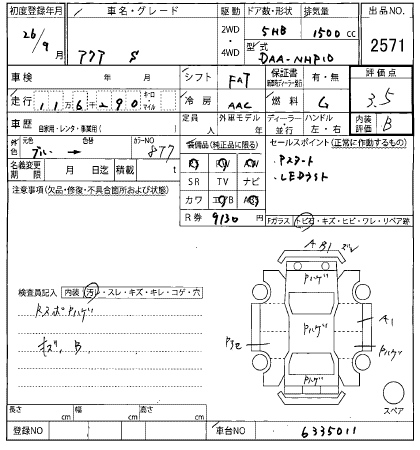 初度登録年月
車名・グレード
駆動
ドア数・形状
排気量
出品NO.
26/9月
アクア S
2WD・4WD
5HB
1500cc
2571
型式
DAA-NHP10
車検 年 月
シフト FAT
保証書
有・無
評価点
3.5
走行 11万6千290 キロ
冷房 AAC
燃料 G
ハンドル
左・右
車歴 自家用・レンタ・事業用( )
定員 人
外車モデル 年
ディーラー・並行
内装評価 B
外色 元色 ブルー → 色替
カラーNO 8T7
装備品(純正品に限る)
セールスポイント(正常に作動するもの)
Pスタート
LEDライト
名義変更期限 月 日迄
積載 t
SR TV ナビ
カワ エアB ABS
R券 9130 円
注意事項(欠品・修復・不具合箇所および状態)
Fガラス(トビ石・キズ・ヒビ・ワレ・リペア跡
検査員記入 内装(汚レ・スレ・キズ・キレ・コゲ・穴
RスポPハゲ
キズ、B
AB1
Pハゲ
Pハゲ
A1
Pハゲ
Pハゲ
スペア
長さ cm
幅 cm
高さ cm
登録NO
車台NO 6335011